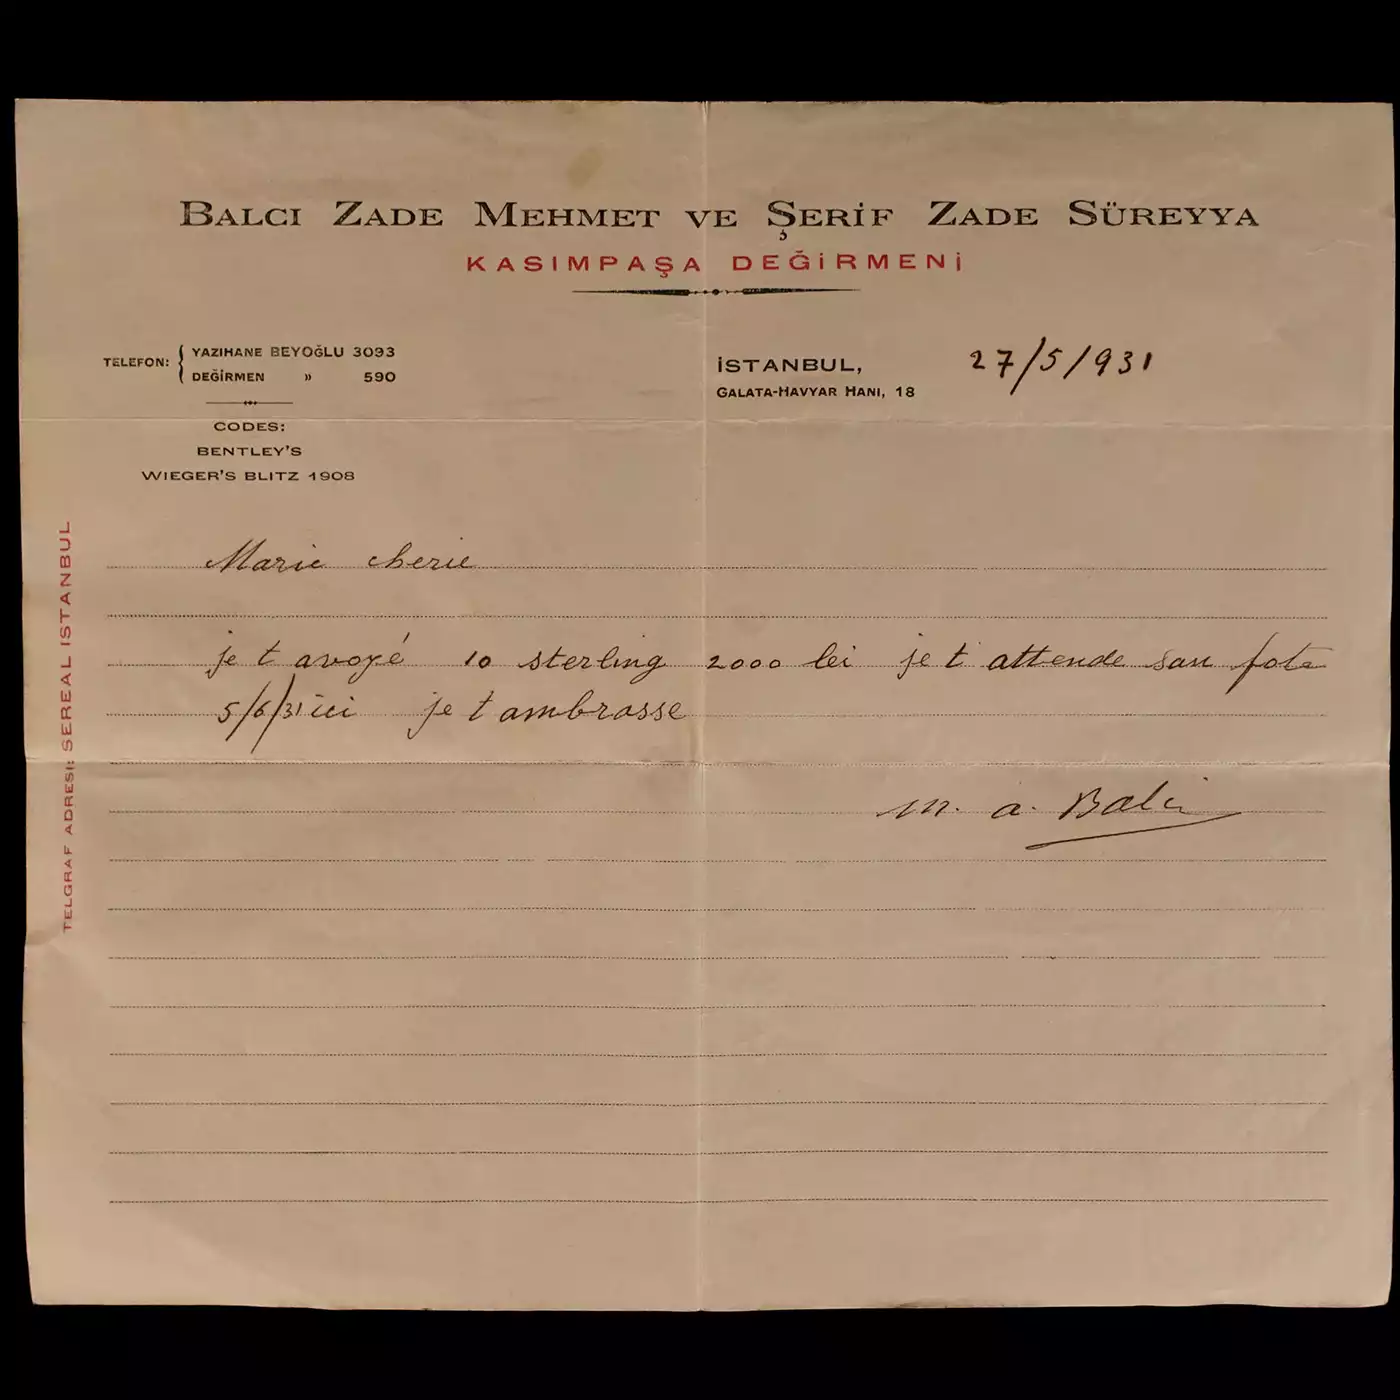 BALCI ZADE MEHMET VE ŞERİF ZADE SÜREYYA
KASIMPAŞA DEĞİRMENİ
TELEFON: YAZIHANE BEYOĞLU 3093
DEĞİRMEN » 590
CODES:
BENTLEY'S
WIEGER'S BLITZ 1908
İSTANBUL, 27/5/931
GALATA-HAVYAR HANI, 18
TELGRAF ADRESI: SEREAL ISTANBUL
Marie cherie
je t avoyé 10 sterling 2000 lei je t attende san fote
5/6/31 ici je t ambrasse
m. a. Balci